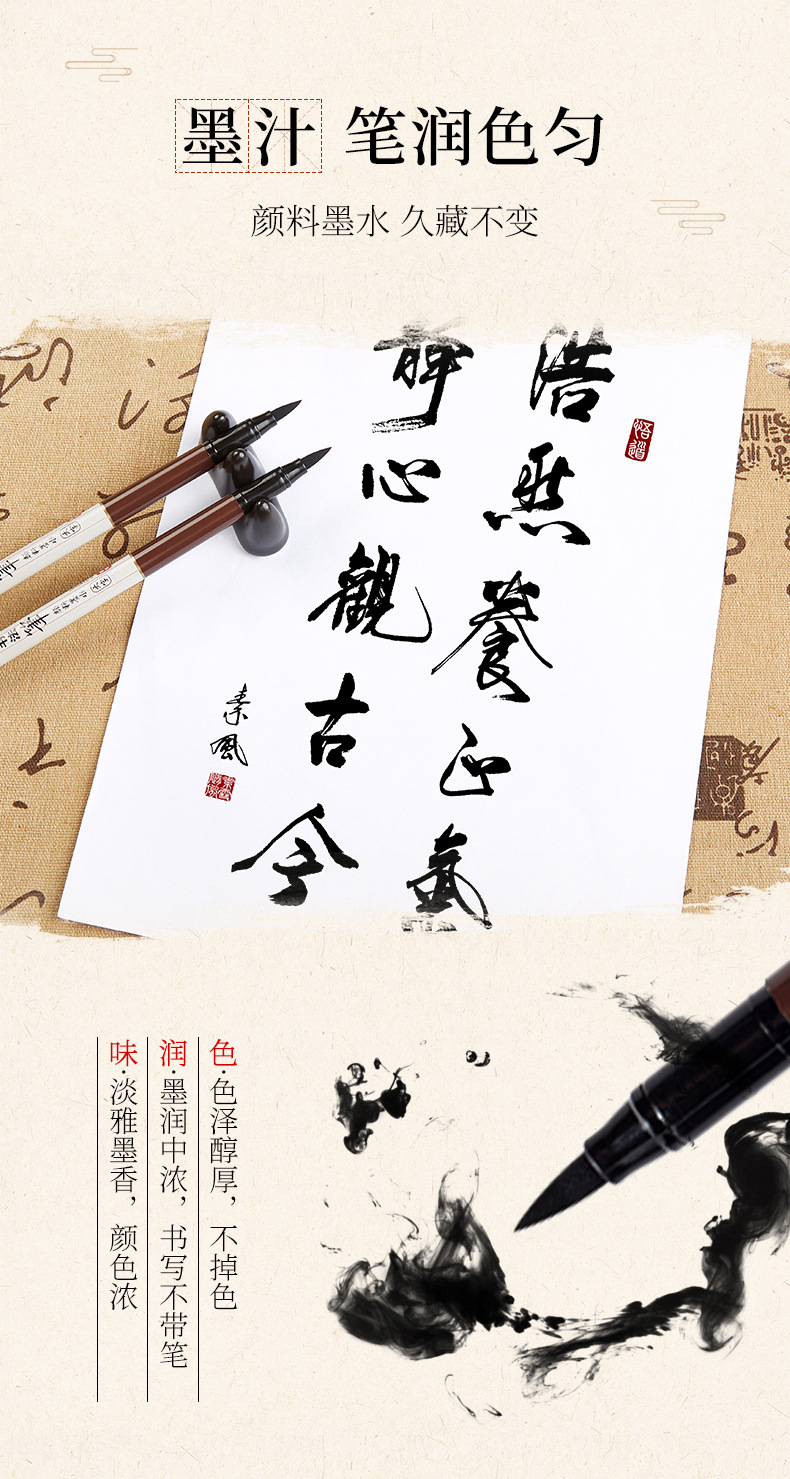 墨汁 笔润色匀
颜料墨水 久藏不变
悟道
浩然養正氣
静心觀古今
素風
色·色泽醇厚，不掉色
润·墨润中浓，书写不带笔
味·淡雅墨香，颜色浓